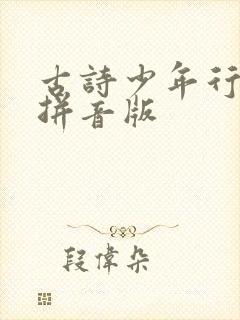 古詩少年行
拼音版
段偉朵